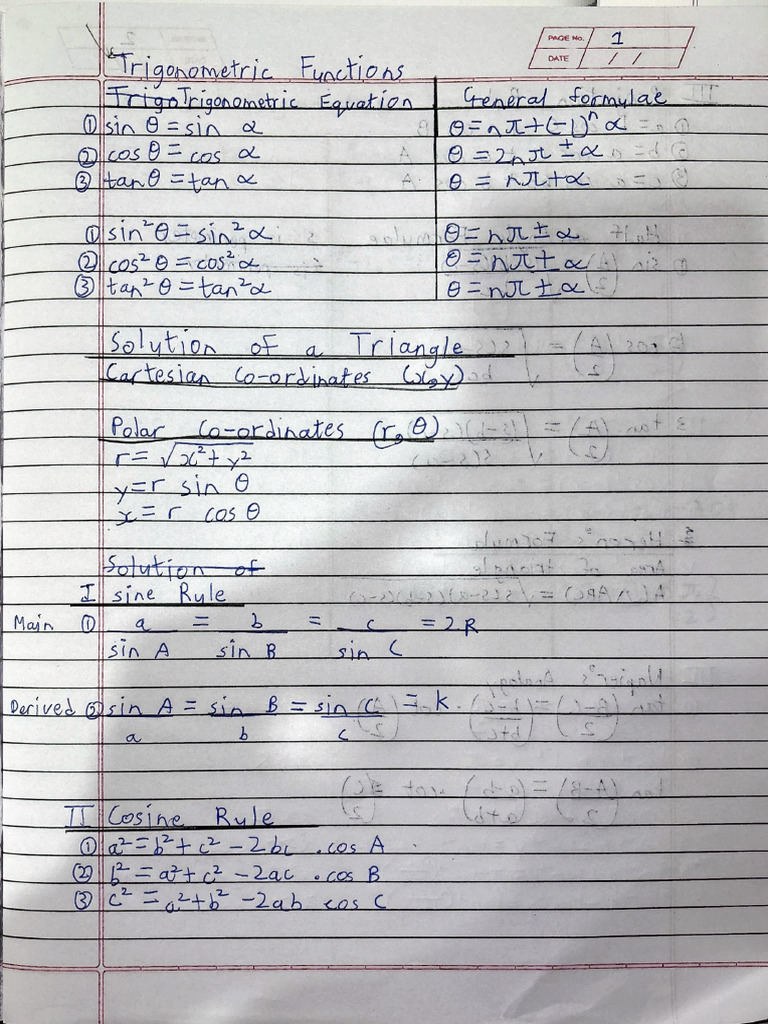 PAGE No. 1
DATE / /
Trigonometric Functions
Trigo Trigonometric Equation General formulae
① sin θ = sin α θ = nπ + (-1)ⁿ α
② cos θ = cos α θ = 2nπ ± α
③ tan θ = tan α θ = nπ + α
① sin²θ = sin²α θ = nπ ± α
② cos²θ = cos²α θ = nπ ± α
③ tan²θ = tan²α θ = nπ ± α
Solution of a Triangle
Cartesian Co-ordinates (x,y)
Polar Co-ordinates (r, θ)
r = √x² + y²
y = r sin θ
x = r cos θ
Solution of
I sine Rule
Main ① a/sin A = b/sin B = c/sin C = 2R
Derived ② sin A/a = sin B/b = sin C/c = k.
II Cosine Rule
① a² = b² + c² - 2bc . cos A
② b² = a² + c² - 2ac . cos B
③ c² = a² + b² - 2ab cos C